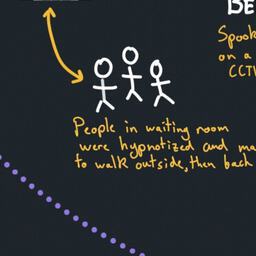 BE
Spook
on a
CCTV
People in waiting room
were hypnotized and ma
to walk outside, then back